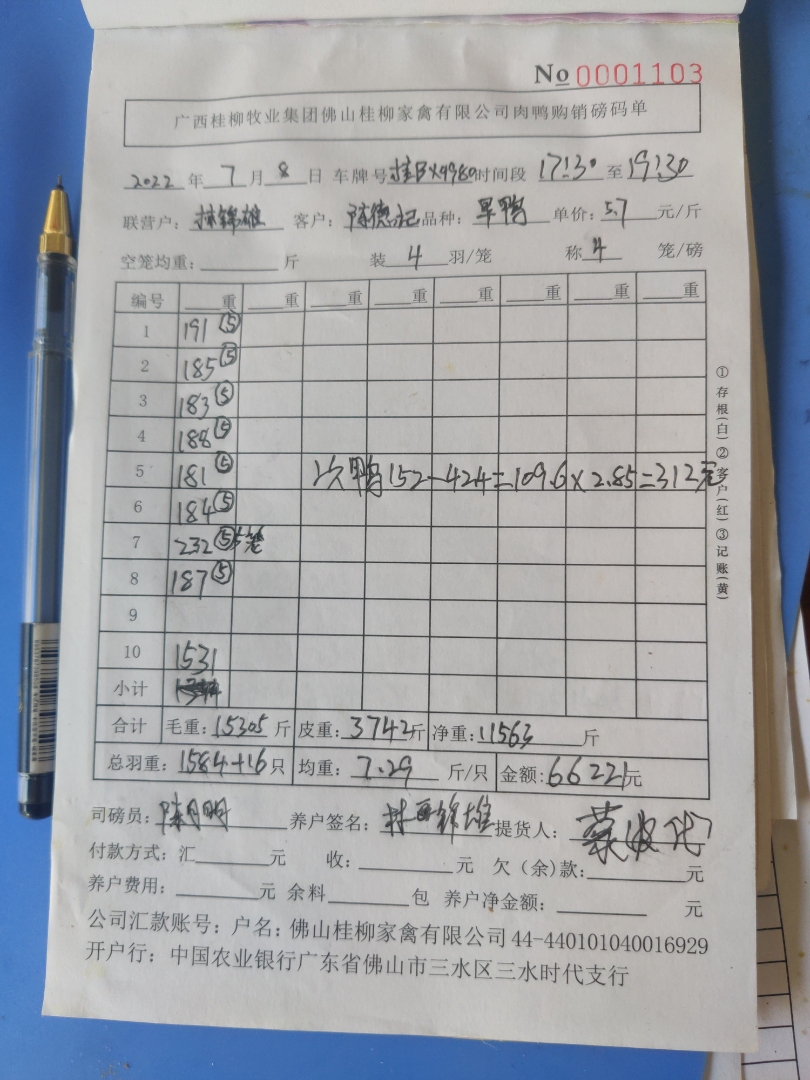 No 0001103
广西桂柳牧业集团佛山桂柳家禽有限公司肉鸭购销磅码单
2022 年 7 月 8 日 车牌号 桂BX4980 时间段 17:30 至 19:30
联营户: 林锦雄 客户: 陈德记 品种: 旱鸭 单价: 5.7 元/斤
空笼均重: 斤 装 4 羽/笼 称 4 笼/磅
编号 重 重 重 重 重 重 重 重
1 191 ⑤
2 185 ⑤
3 183 ⑤
4 188 ⑤
5 181 ⑤ 次鸭152-424=109.6×2.85=312元
6 184 ⑤
7 232 ⑤ 5笼
8 187 ⑤
9
10 1531
小计
合计 毛重: 15305 斤 皮重: 3742 斤 净重: 11563 斤
总羽重: 1584+16 只 均重: 7.29 斤/只 金额: 66221 元
司磅员: 陈月明 养户签名: 林锦雄 提货人:
付款方式: 汇 元 收: 元 欠(余)款: 元
养户费用: 元 余料 包 养户净金额: 元
公司汇款账号: 户名: 佛山桂柳家禽有限公司 44-440101040016929
开户行: 中国农业银行广东省佛山市三水区三水时代支行
①存根(白)②客户(红)③记账(黄)